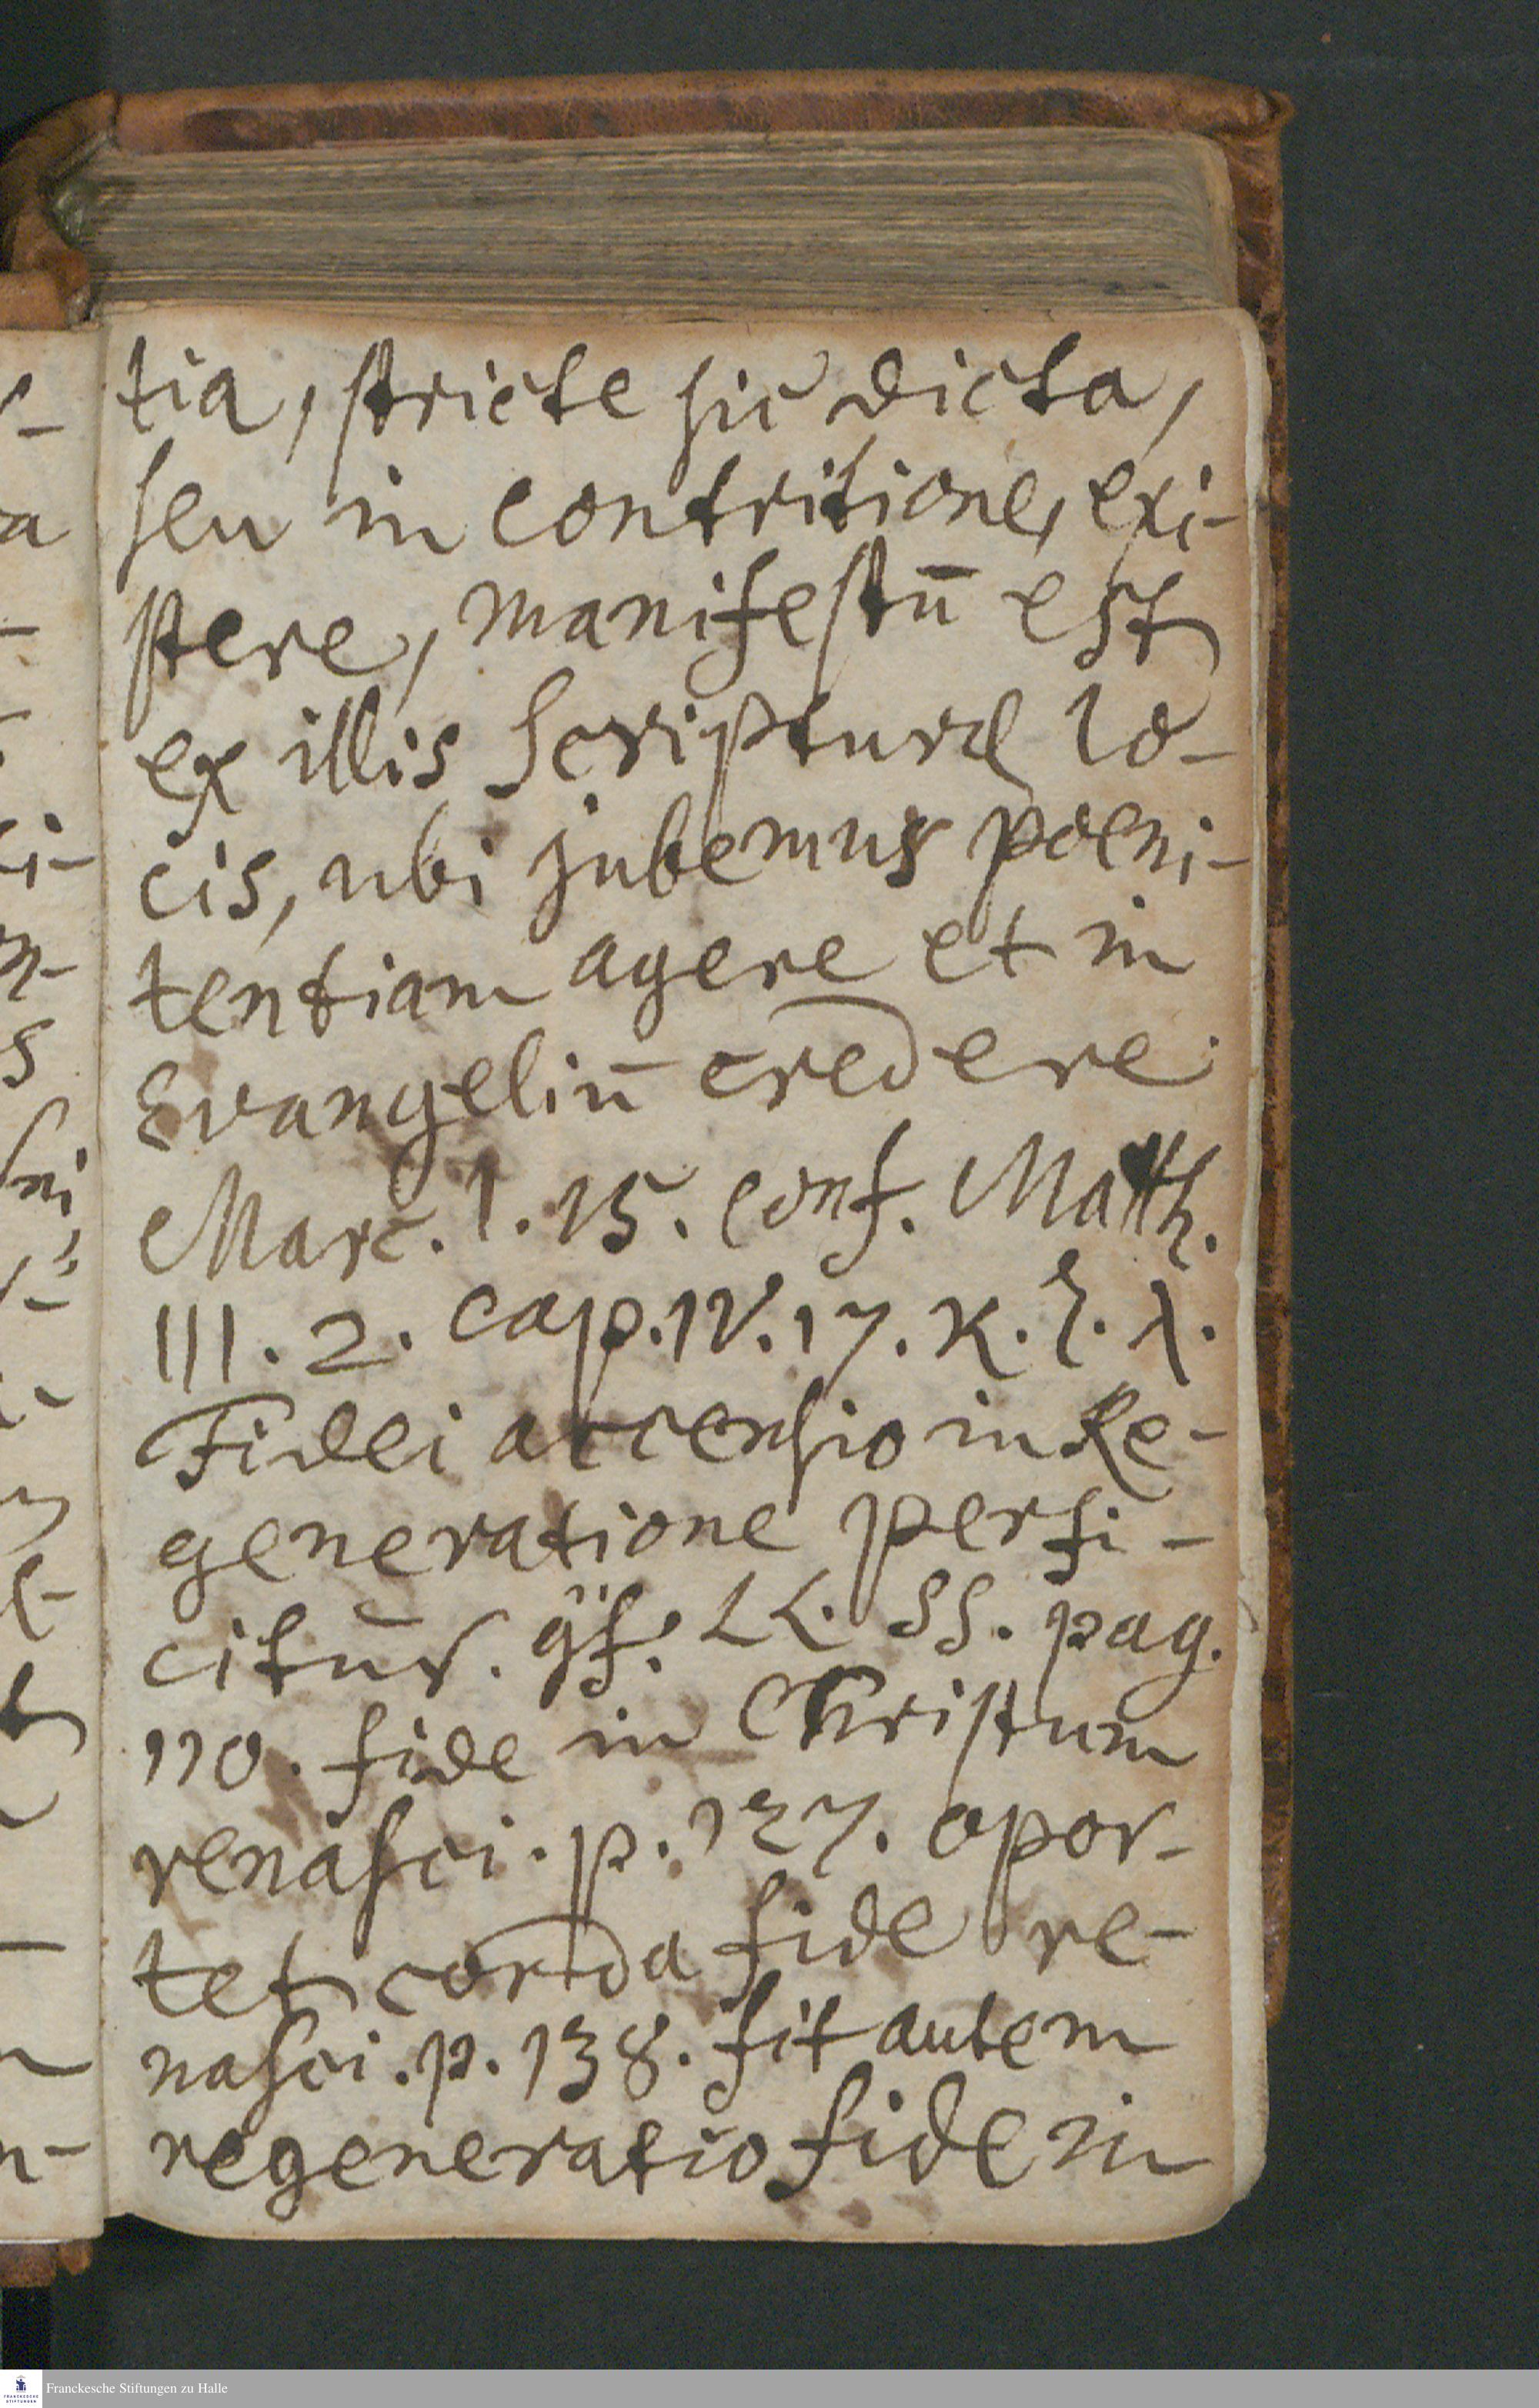 tia, stricte sic dicta,
seu in contritione, exi-
stere, manifestū est
ex illis Scripturæ lo-
cis, ubi jubemur poeni-
tentiam agere et in
Evangeliū credere
Marc. 1. 15. conf. Matth.
III. 2. cap. IV. 17. κ. ξ. λ.
Fidei accensio in Re-
generatione perfi-
citur. LL. SS. pag.
110. fide in Christum
renasci. p. 137. opor-
tet corda fide re-
nasci. p. 138. fit autem
regeneratio fide in
Franckesche Stiftungen zu Halle